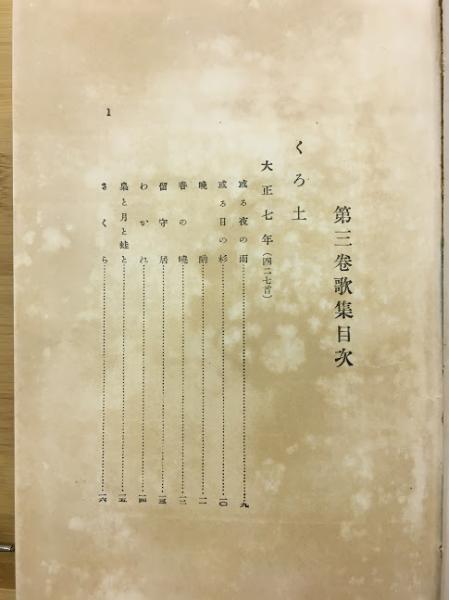 第三巻歌集目次
くろ土
大正七年(四二七首)
或る夜の雨……九
或る日の杉……一〇
晩餉……一一
春の曉……一二
留守居……一三
わかれ……一四
梟と月と蛙と……一五
さくら……一六
1